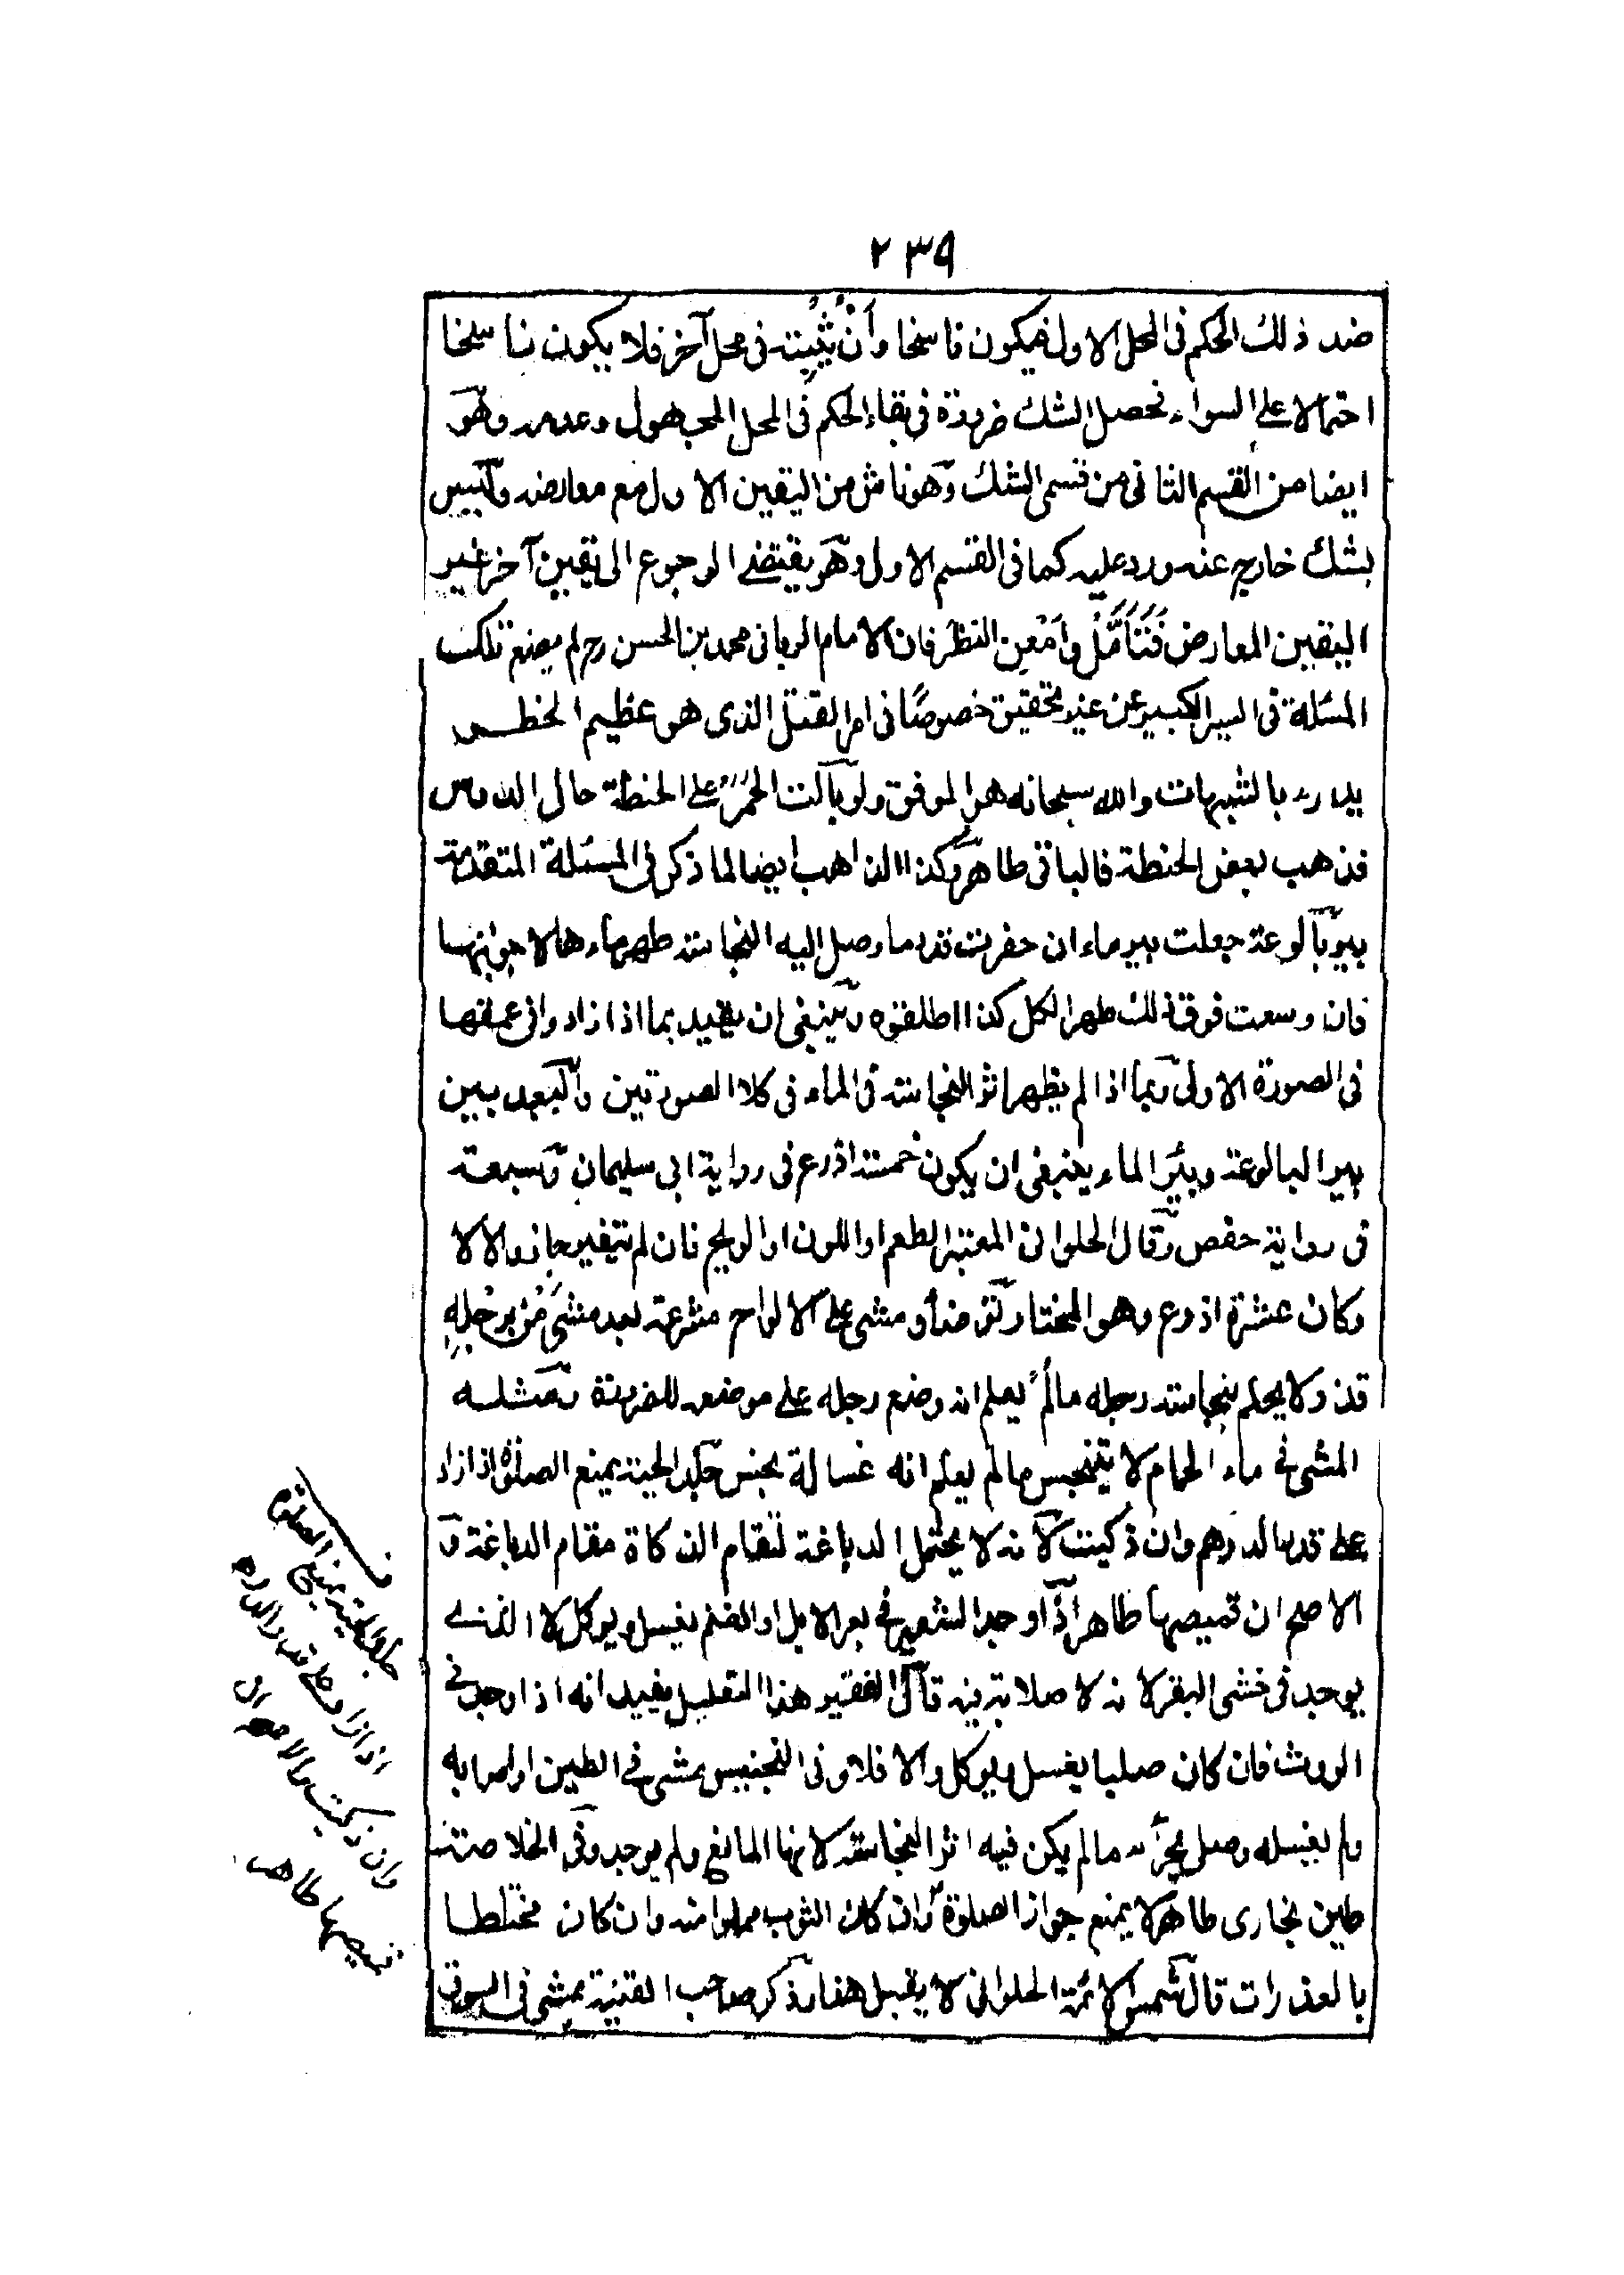 ٢٣٩
ضد ذلك الحكم فى المحل الاول فيكون ناسخا وأن يثبته فى محل آخر فلا يكون ناسخا
احتمالا على السواء فحصل الشك ضرورة فى بقاء الحكم فى المحل المجهول وعدمه وهو
ايضا من القسم الثانى من قسمى الشك وهو ناش من اليقين الاول مع معارضه وليس
بشك خارج عنه ورد عليه كما فى القسم الاول وهو يقتضى الرجوع الى يقين آخر غير
اليقين المعارض فتأمل وأمعن النظر فان الامام الربانى محمد بن الحسن رح لم يضع تلك
المسئلة فى السير الكبير عن غير تحقيق خصوصا فى امر القتل الذى هو عظيم الخطر
يدرء بالشبهات والله سبحانه هو الموفق ولو بالت الحمر على الحنطة حال الدوس
فذهب بعض الحنطة فالباقى طاهر وكذا الذاهب ايضا لما ذكر فى المسئلة المتقدمة
بير بالوعة جعلت بير ماء ان حفرت قدر ما وصل اليه النجاسة طهر ماءها لا جوانبها
فان وسعت فوق ذلك طهر الكل كذا اطلقوه وينبغى ان يقيد بما اذا زاد وافى عمقها
فى الصورة الاولى وبما اذا لم يظهر اثر النجاسة فى الماء فى كلا الصورتين والبعد بين
بير البالوعة وبئر الماء ينبغى ان يكون خمسة اذرع فى رواية ابى سليمان وسبعة
فى رواية حفص وقال الحلوانى المعتبر الطعم او اللون او الريح فان لم يتغير جاز والا لا
وكان عشرة اذرع وهو المختار توضأ ومشى على الالواح مشرعة بعد مشى من برجله
قذر ولا يحكم بنجاسة رجله مالم يعلم انه وضع رجله على موضعه للضرورة ومثله
المشى فى ماء الحمام لا يتنجس مالم يعلم انه غسالة نجس جلد الحية يمنع الصلوة اذا زاد
على قدر الدرهم وان ذكيت لانه لا يحتمل الدباغة لتقام الذكاة مقام الدباغة و
الاصح ان قميصها طاهر اذا وجد الشعير فى بعر الابل او الغنم يغسل ويوكل لا الذى
يوجد فى خثى البقر لانه لا صلابة فيه قال الفقير هذا التعليل يفيد انه اذا وجد فى
الروث فان كان صلبا يغسل ويوكل والا فلا وفى التجنيس مشى فى الطين او اصابه
ولم يغسله وصلى يجزءه مالم يكن فيه اثر النجاسة لانها المانع ولم يوجد وفى الخلاصة
طين بخارى طاهر لا يمنع جواز الصلوة وان كان الثوب مملوا منه وان كان مختلطا
بالعذرات قال شمس الائمة الحلوانى لا يقبل هذا وذكر صاحب القنية يمشى فى السوق
جلد الحية يمنع الصلوة
اذا زاد على قدر الدرهم
وان ذكيت والاصح ان
قميصها طاهر